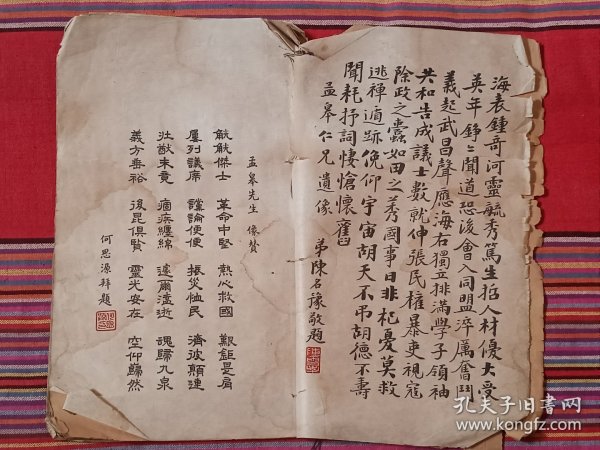 海表鍾奇河靈毓秀篤生哲人材優大受
英年錚々聞道恐後會入同盟淬厲奮鬥
義起武昌聲應海右獨立排滿學子領袖
共和告成議士數就伸張民權暴吏視寇
除政之蠹如田之莠國事日非杞憂莫救
逃禅遁跡俛仰宇宙胡天不弔胡德不壽
聞耗抒詞悽愴懷舊
孟皋仁兄遺像
弟陳名豫敬題
孟皋先生 像贊
觥觥傑士 革命中堅 熱心救國 艱鉅是肩
屢列議席 讜論便便 振災恤民 濟彼顛連
壯猷未竟 痼疾纏綿 遽爾溘逝 魂歸九泉
義方垂裕 後昆俱賢 靈光安在 空仰歸然
何思源拜題
孔夫子旧书网
www.kongfz.com